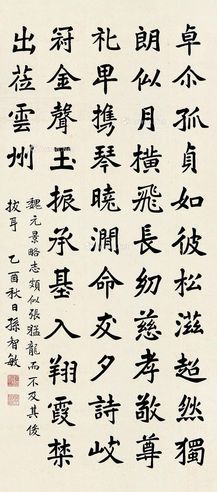 卓尒孤貞如彼松滋超然獨
朗似月橫飛長幼慈孝敬尊
礼卑携琴曉澗命友夕詩岐
冠金聲玉振承基入翔霞禁
出莅雲州
魏元景略志頗似張猛龍而不及其俊
拔耳 乙酉秋日孫智敏